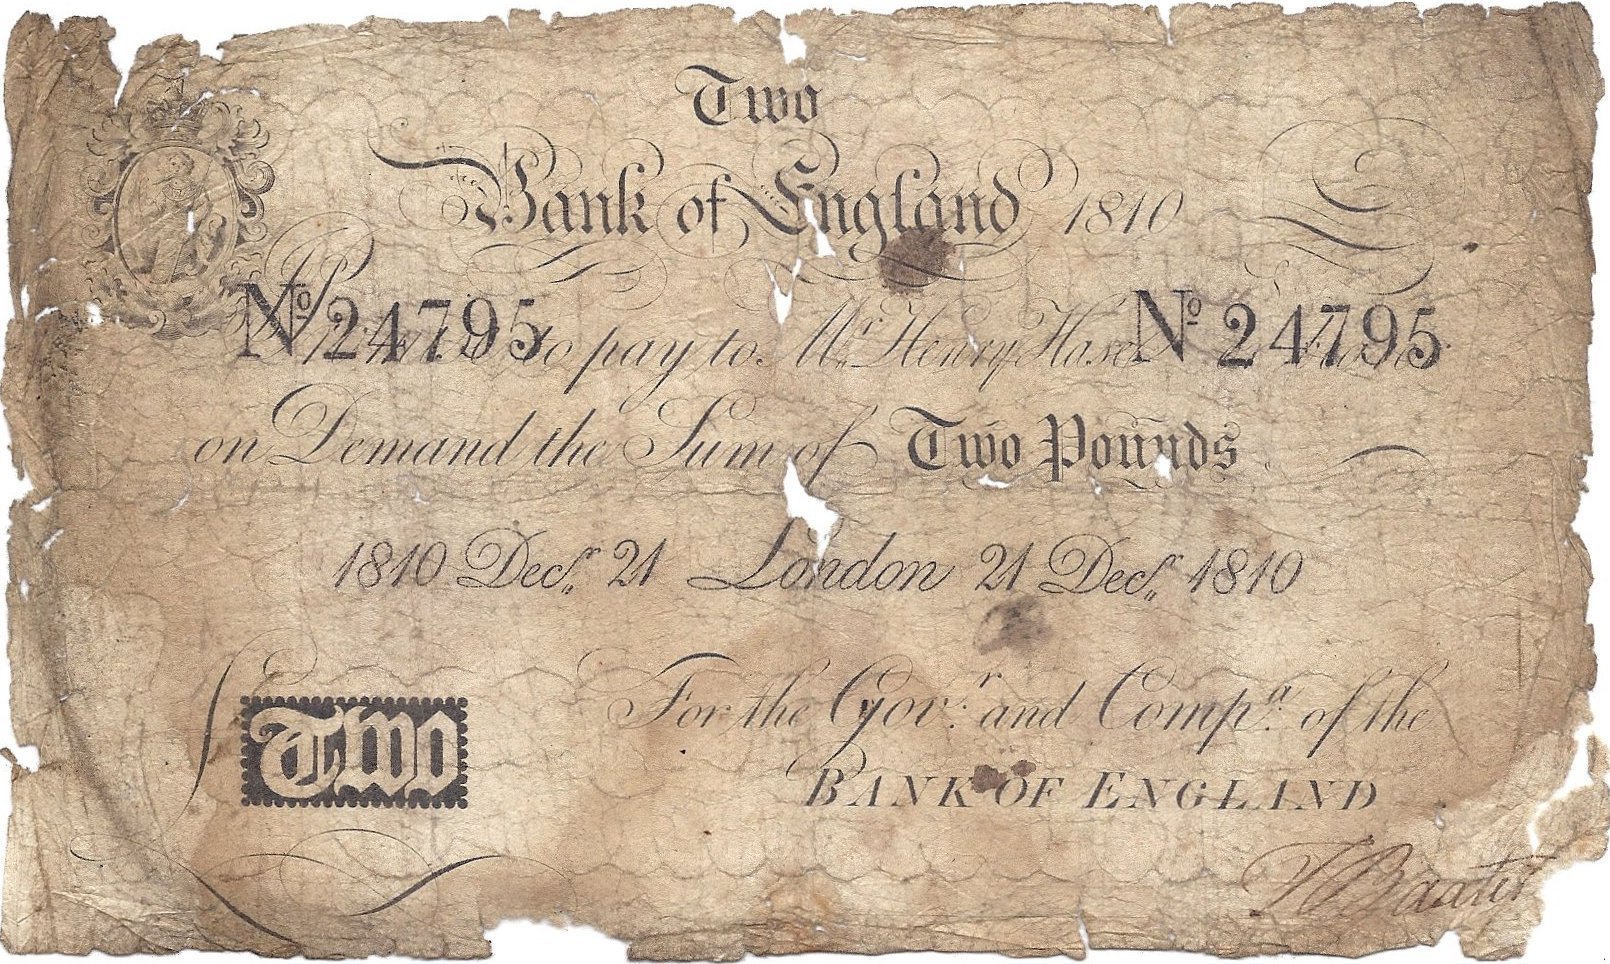 Two
Bank of England 1810
No 24795 to pay to Mr. Henry Hase No 24795
on Demand the Sum of Two Pounds
1810 Decr. 21 London 21 Decr. 1810
For the Govr. and Compa. of the
Two
BANK OF ENGLAND